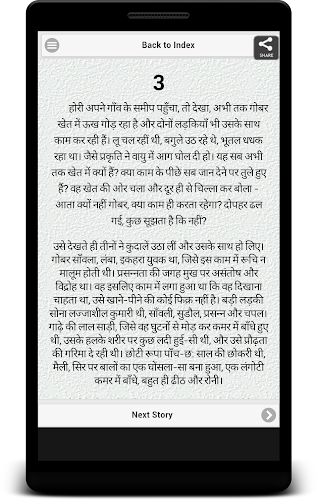 Back to Index
SHARE
3
होरी अपने गाँव के समीप पहुँचा, तो देखा, अभी तक गोबर
खेत में ऊख गोड़ रहा है और दोनों लड़कियाँ भी उसके साथ
काम कर रही हैं। लू चल रही थी, बगुले उठ रहे थे, भूतल धधक
रहा था। जैसे प्रकृति ने वायु में आग घोल दी हो। यह सब अभी
तक खेत में क्यों हैं? क्या काम के पीछे सब जान देने पर तुले हुए
हैं? वह खेत की ओर चला और दूर ही से चिल्ला कर बोला -
आता क्यों नहीं गोबर, क्या काम ही करता रहेगा? दोपहर ढल
गई, कुछ सूझता है कि नहीं?
उसे देखते ही तीनों ने कुदालें उठा लीं और उसके साथ हो लिए।
गोबर साँवला, लंबा, इकहरा युवक था, जिसे इस काम में रूचि न
मालूम होती थी। प्रसन्नता की जगह मुख पर असंतोष और
विद्रोह था। वह इसलिए काम में लगा हुआ था कि वह दिखाना
चाहता था, उसे खाने-पीने की कोई फिक्र नहीं है। बड़ी लड़की
सोना लज्जाशील कुमारी थी, साँवली, सुडौल, प्रसन्न और चपल।
गाढ़े की लाल साड़ी, जिसे वह घुटनों से मोड़ कर कमर में बाँधे हुए
थी, उसके हलके शरीर पर कुछ लदी हुई-सी थी, और उसे प्रौढ़ता
की गरिमा दे रही थी। छोटी रूपा पाँच-छ: साल की छोकरी थी,
मैली, सिर पर बालों का एक घोंसला-सा बना हुआ, एक लंगोटी
कमर में बाँधे, बहुत ही ढीठ और रोनी।
Next Story